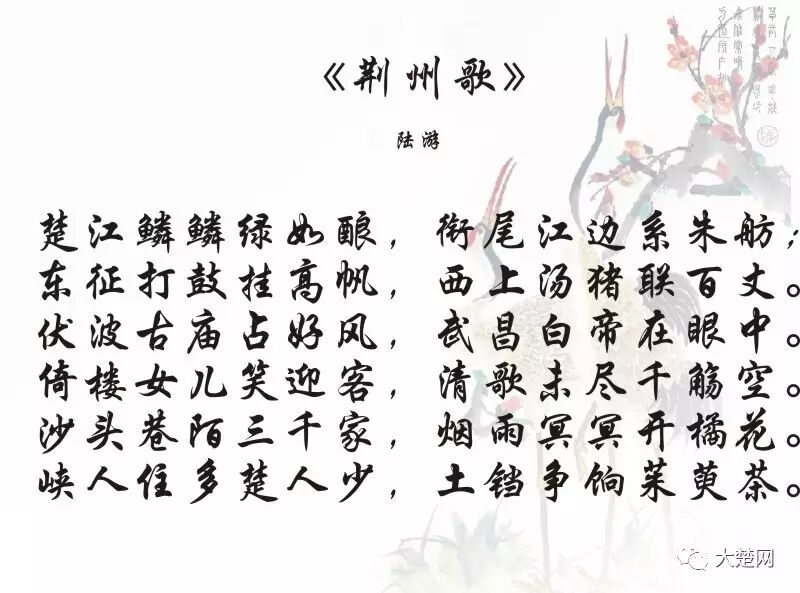 《荆州歌》
陆游
楚江鳞鳞绿如酿，衔尾江边系朱舫；
东征打鼓挂高帆，西上汤猪联百丈。
伏波古庙占好风，武昌白帝在眼中。
倚楼女儿笑迎客，清歌未尽千觞空。
沙头巷陌三千家，烟雨冥冥开橘花。
峡人住多楚人少，土铛争饷茱萸茶。
大楚网